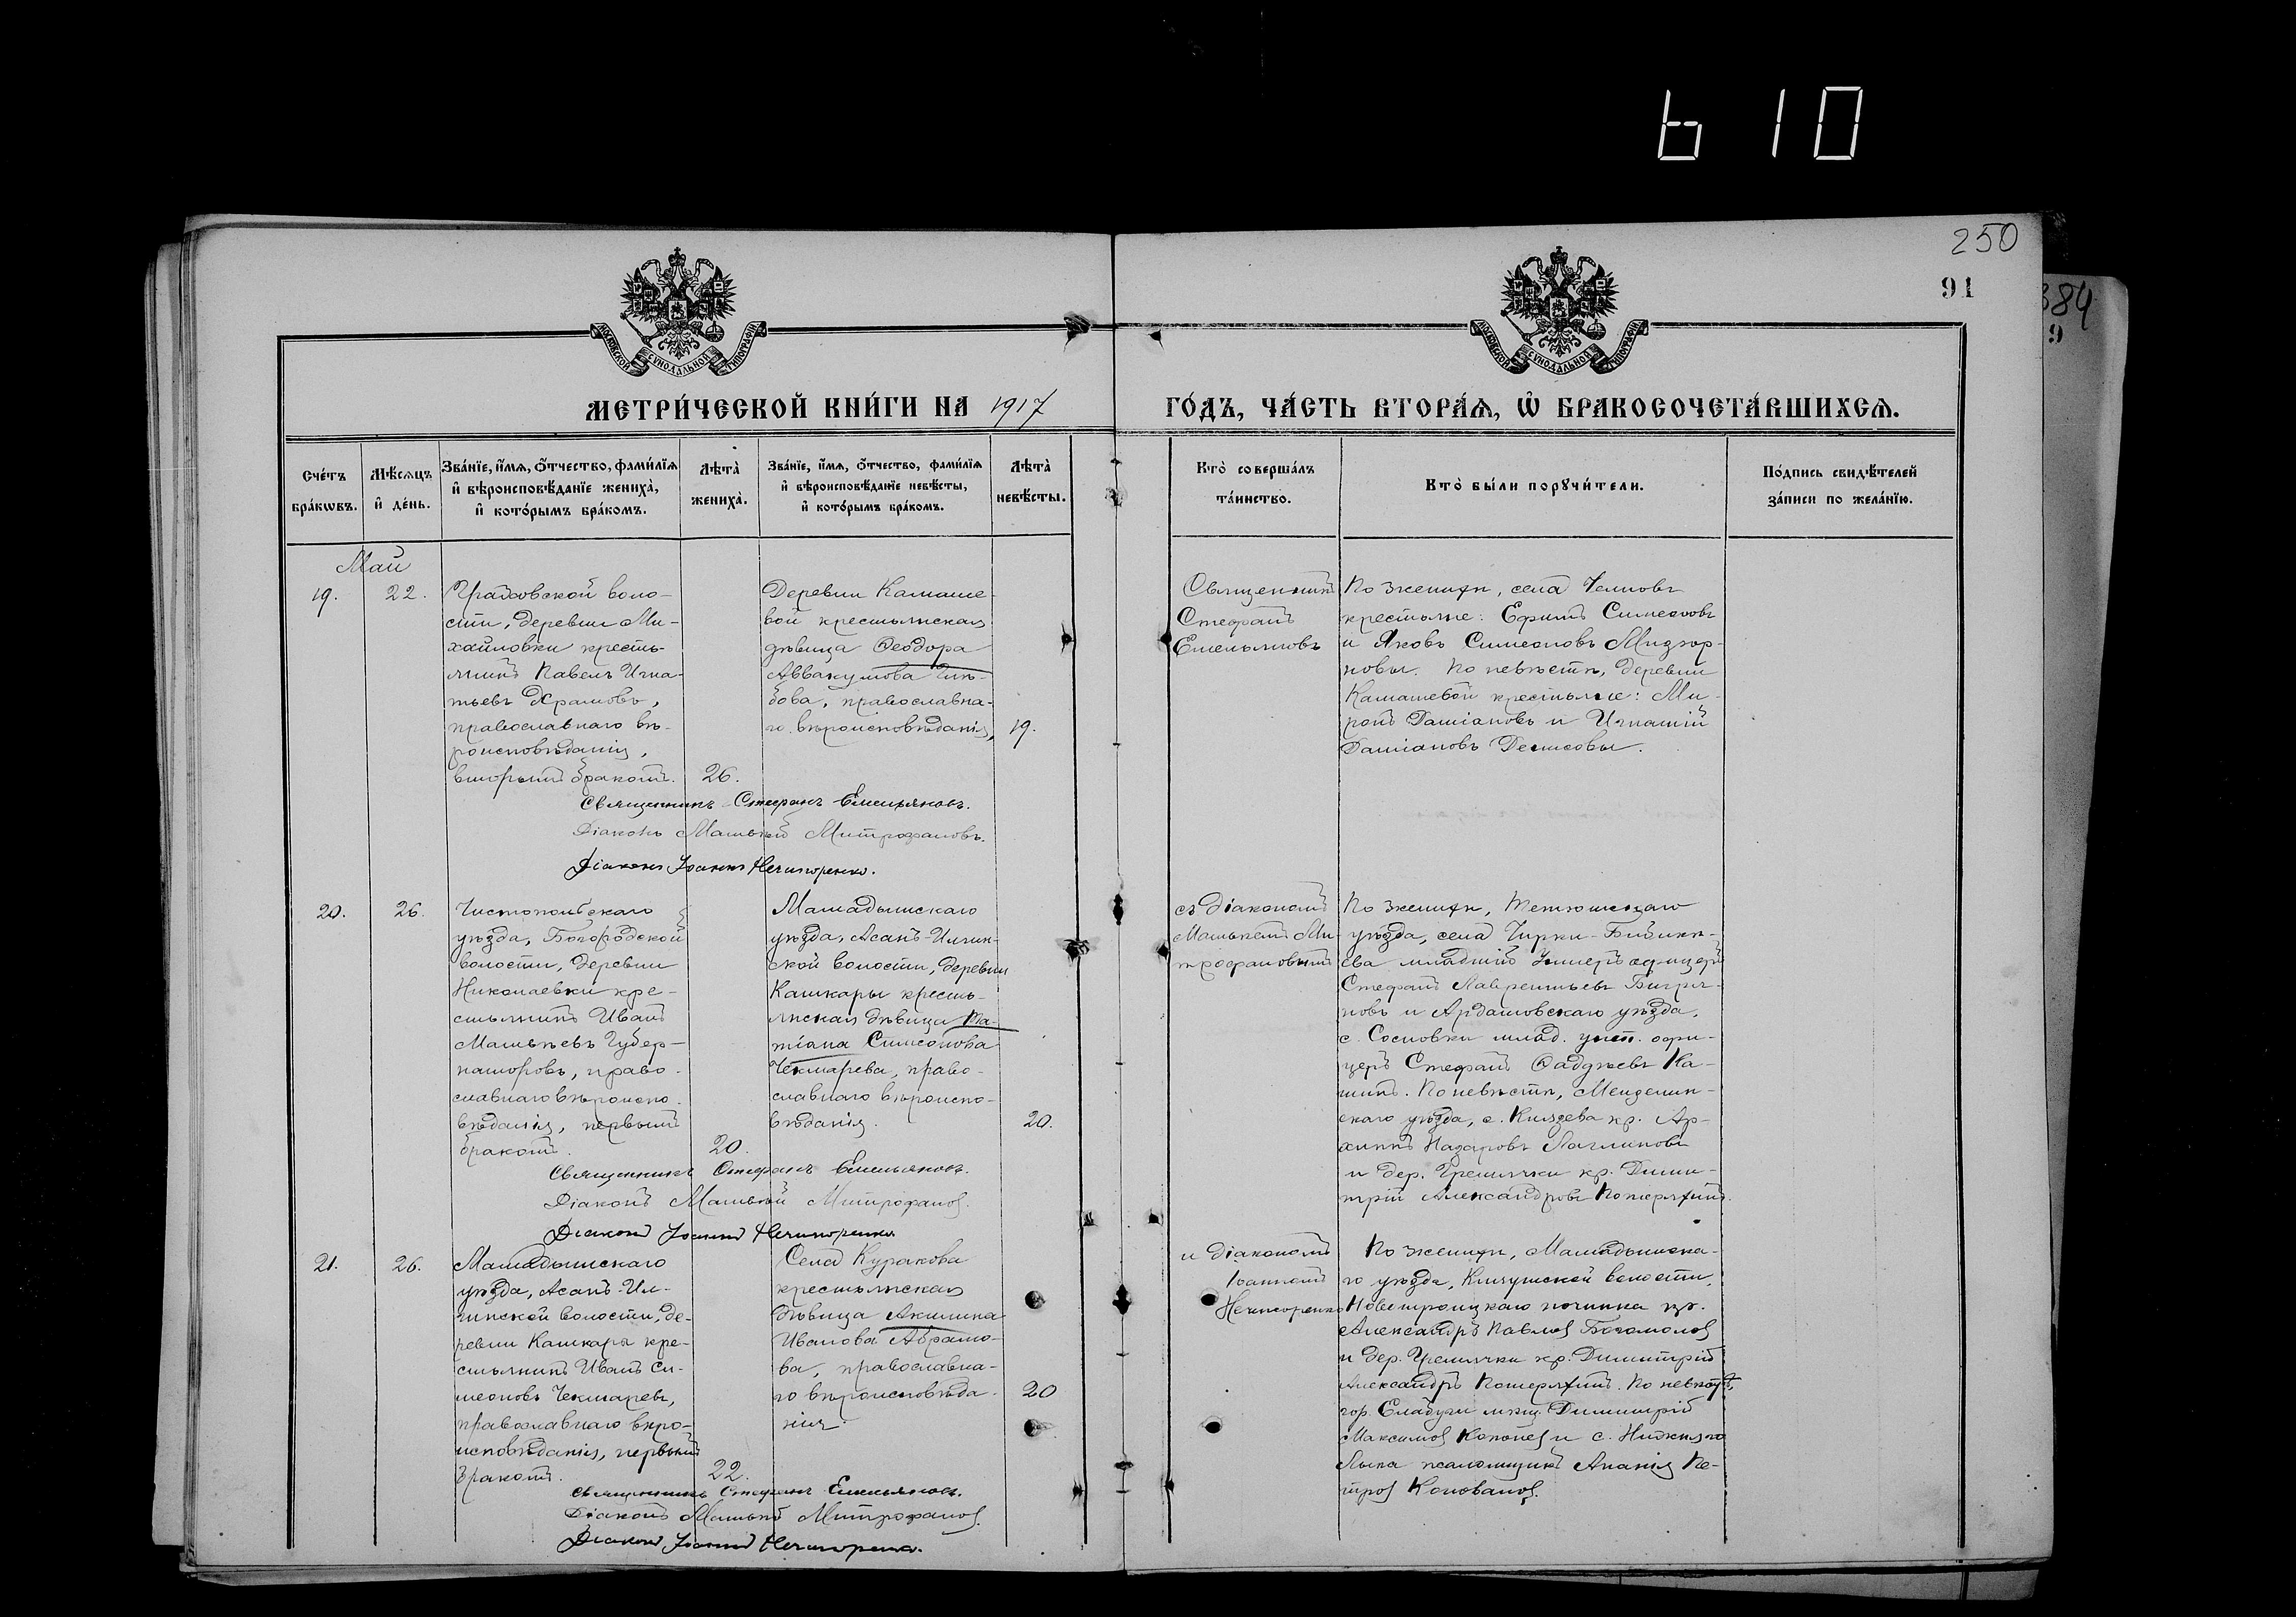 610
250
91
384
9
МОСКОВСКОЙ СУНОДАЛЬНОЙ ТИПОГРАФІИ
МОСКОВСКОЙ СУНОДАЛЬНОЙ ТИПОГРАФІИ
МЕТРИ́ЧЕСКОЙ КНИ́ГИ НА 1917 ГО́ДЪ, ЧА́СТЬ ВТОРА́Ѧ, Ѡ҆ БРАКОСОЧЕТА́ВШИХСѦ.
Сче́тъ
бра́кѡвъ.
Мѣ́сѧцъ
и҆ де́нь.
Зва́нїе, и҆́мѧ, ѻ҆́тчество, фами́лїѧ
и҆ вѣроисповѣ́данїе жениха̀,
и҆ кото́рымъ бра́комъ.
Лѣта̀
жениха̀.
Зва́нїе, и҆́мѧ, ѻ҆́тчество, фами́лїѧ
и҆ вѣроисповѣ́данїе невѣ́сты,
и҆ кото́рымъ бра́комъ.
Лѣта̀
невѣ́сты.
Кто̀ соверша́лъ
та́инство.
Кто̀ бы́ли порꙋчи́тели.
По́дпись свидѣ́телей
за́писи по жела́нїю.
Май
19.
22.
воло-
сти, деревни Ми-
хайловки кресть-
янинъ Павелъ Игна-
тьевъ Храмовъ,
православнаго вѣ-
роисповѣданія,
вторымъ бракомъ.
26.
Деревни Камаше-
вой крестьянская
дѣвица Ѳеодора
Аввакумова
православна-
го вѣроисповѣданія,
19.
Священникъ
Стефанъ
Емельяновъ
По женихѣ, села
крестьяне: Ефимъ Симеоновъ
и Яковъ Симеоновъ
новы. По невѣстѣ, деревни
Камашевой крестьяне: Ми-
ронъ Даміановъ и Игнатій
Даміановъ Денисовы.
Священникъ Стефанъ Емельяновъ.
Діаконъ Матвѣй Митрофановъ.
Діаконъ Іоаннъ Нечипоренко.
20.
26.
Чистопольскаго
уѣзда, Богородской
волости, деревни
Николаевки кре-
стьянинъ Иванъ
Матвѣевъ Губер-
наторовъ, право-
славнаго вѣроиспо-
вѣданія, первымъ
бракомъ.
20.
Мамадышскаго
уѣзда, Асанъ-Илгин-
ской волости, деревни
Кашкары кресть-
янская дѣвица Та-
тіана Симеонова
Чекмарева, право-
славнаго вѣроиспо-
вѣданія.
20.
съ діакономъ
Матвѣемъ Ми-
трофановымъ
По женихѣ, Тетюшскаго
уѣзда, села Чирки-Бибике-
ева младшій Унтеръ офицеръ
Стефанъ Лаврентьевъ
новъ и Ардатовскаго уѣзда,
с. Сосновки млад. унт. офи-
церъ Стефанъ Ѳаддѣевъ Ка-
шинъ. По невѣстѣ, Мензелин-
скаго уѣзда, с. Князева кр. Ар-
хиппъ Назаровъ
и дер. Гремячки кр. Дими-
трій Александровъ Потеряхинъ.
Священникъ Стефанъ Емельяновъ.
Діаконъ Матвѣй Митрофановъ.
Діаконъ Іоаннъ Нечипоренко
21.
26.
Мамадышскаго
уѣзда, Асанъ-Ил-
гинской волости, де-
ревни Кашкары кре-
стьянинъ Иванъ Си-
меоновъ Чекмаревъ,
православнаго вѣро-
исповѣданія, первымъ
бракомъ.
22.
Села Куракова
крестьянская
дѣвица Акилина
Иванова Абрамо-
ва, православна-
го вѣроисповѣда-
нія.
20
и діакономъ
Іоанномъ
Нечипоренко
По женихѣ, Мамадышска-
го уѣзда, Кляушской волости,
Новотроицкаго починка кр.
Александръ Павловъ Богомоловъ
и дер. Гремячки кр. Димитрій
Александръ Потеряхинъ. По невѣстѣ,
гор. Елабуги мѣщ. Димитрій
Максимовъ и с. Нижняго
псаломщикъ Ананія Пе-
тровъ Коноваловъ.
Священникъ Стефанъ Емельяновъ.
Діаконъ Матвѣй Митрофановъ.
Діаконъ Іоаннъ Нечипоренко.